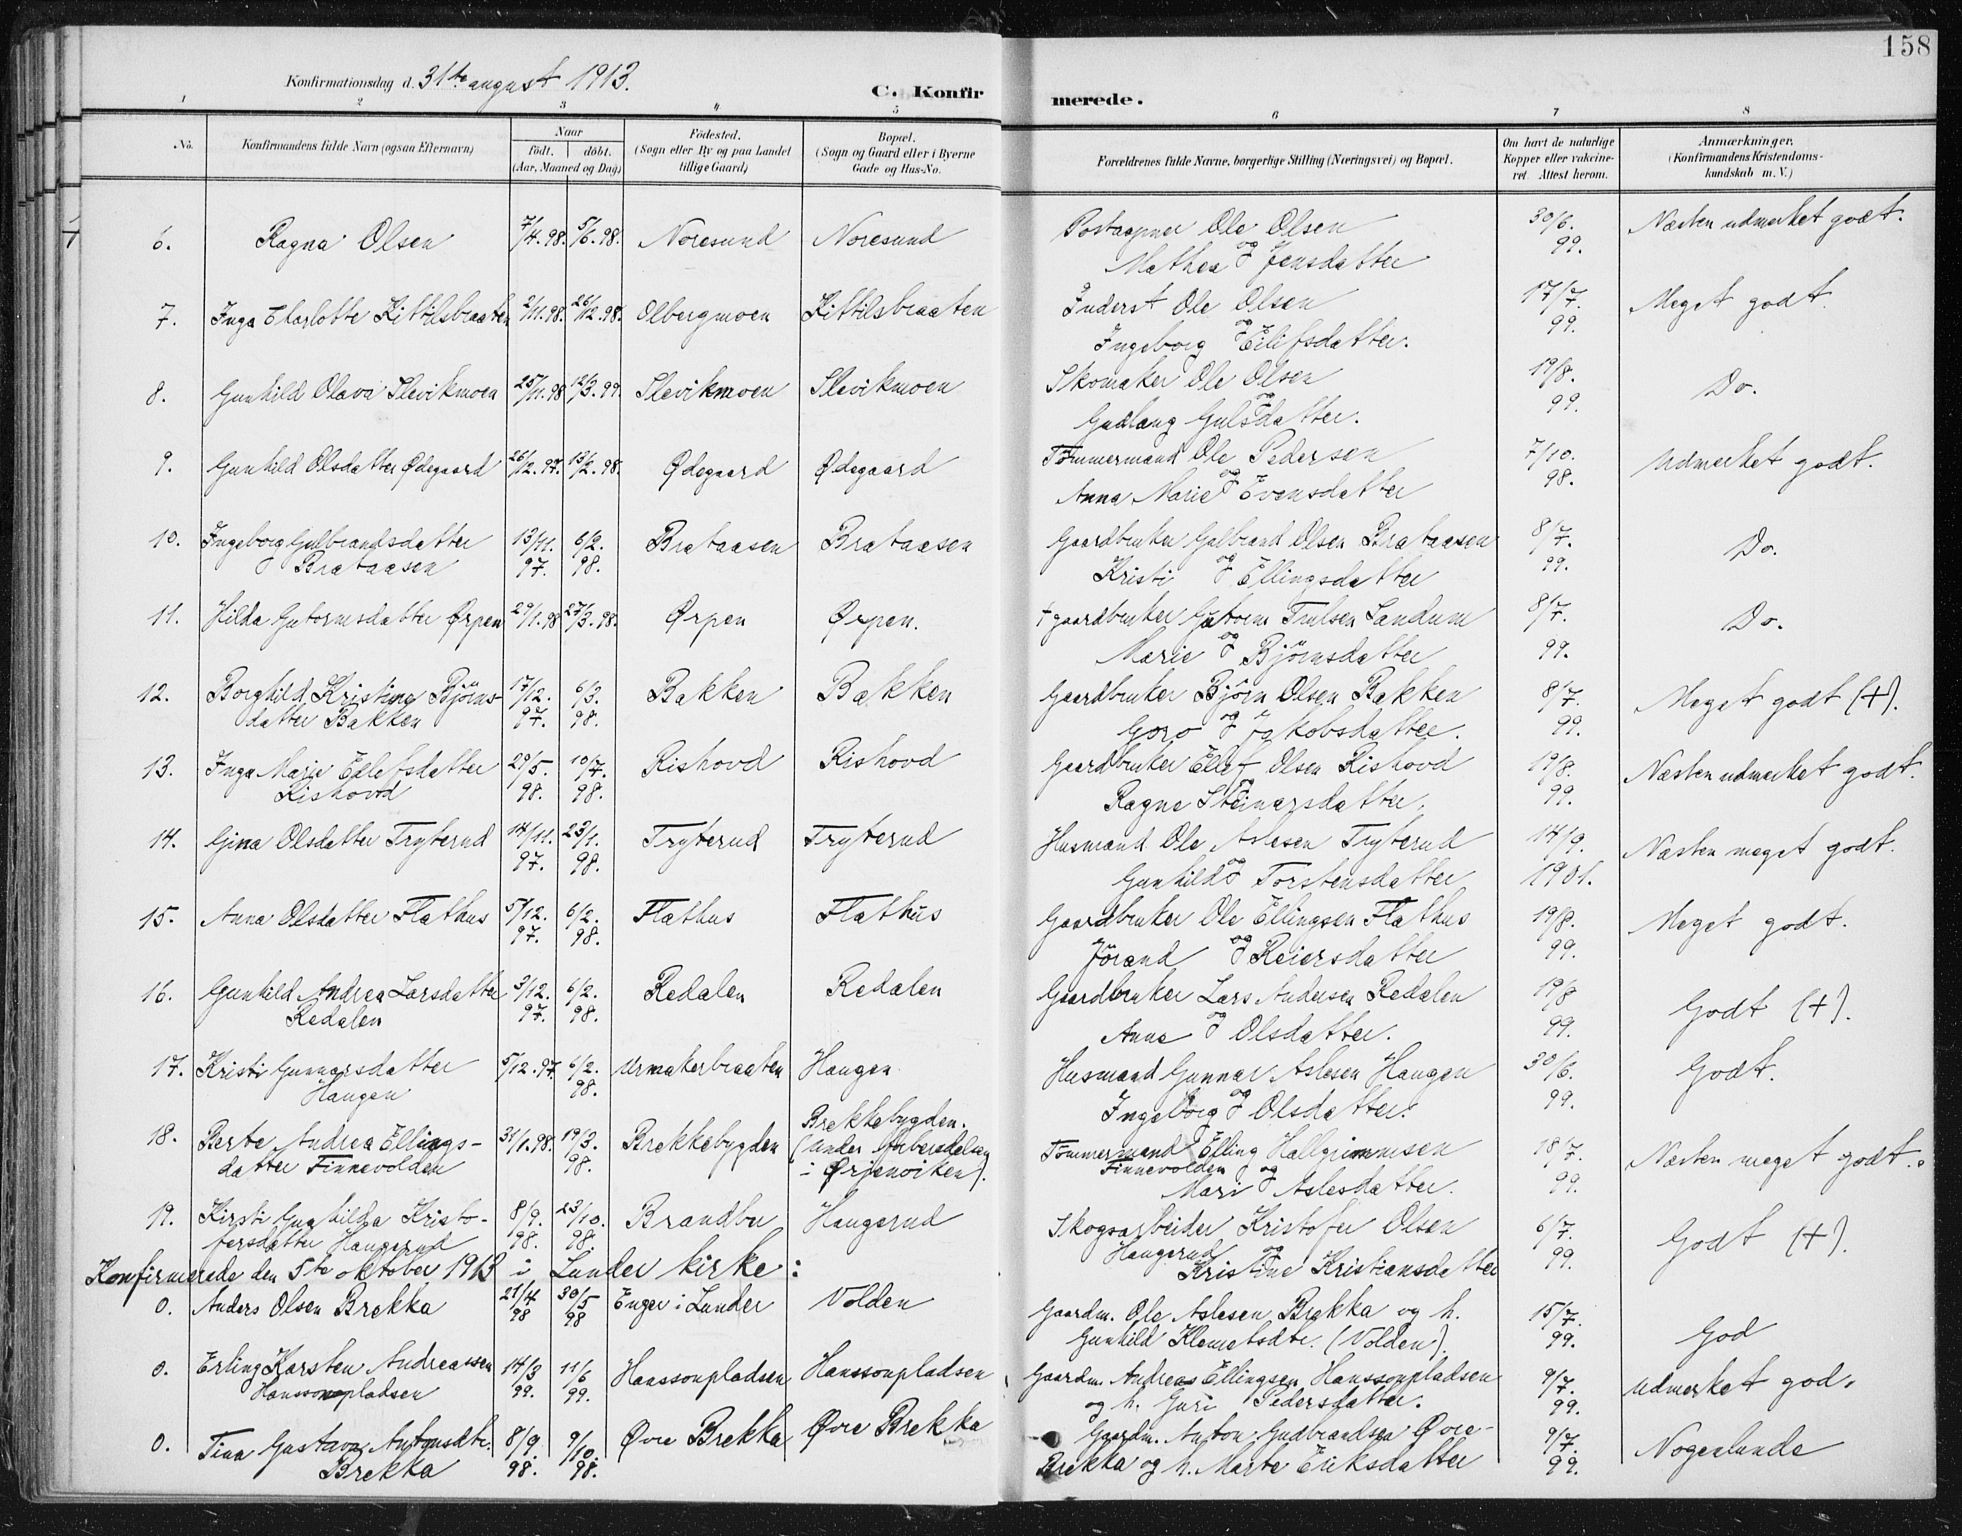 158
Konfirmationsdag d. 31te august 1913.
C. Konfirmerede.
1 2 3 4 5 6 7 8
No.
Konfirmandens fulde Navn (ogsaa Efternavn)
Naar
födt. döbt.
(Aar, Maaned og Dag)
Födested.
(Sogn eller By og paa Landet
tillige Gaard)
Bopæl.
(Sogn og Gaard eller i Byerne
Gade og Hus-No.
Forældrenes fulde Navne, borgerlige Stilling (Næringsvei) og Bopæl.
Om havt de naturlige
Kopper eller vakcine-
ret. Attest herom.
Anmærkninger.
(Konfirmandens Kristendoms-
kundskab m. V.)
6. Ragna Olsen 7/4.98. 5/6.98. Noresund Noresund Postaapner Ole Olsen 30/6. Næsten udmerket godt.
og Mathea Jensdatter 99.
7. Inga Charlotte Kittilsbraaten 2/11.98. 26/12.98. Olbergmoen Kittilsbraaten Inderst Ole Olsen 17/7. Meget godt.
og Ingeborg Eilifsdatter. 99.
8. Gunhild Olava Slevikmoen 25/11.98 12/3.99. Slevikmoen Slevikmoen Skomaker Ole Olsen 19/8. Do.
og Gudlaug Gulsdatter. 99.
9. Gunhild Olsdatter Ødegaard 26/12.97. 13/2.98. Ødegaard Ødegaard Tømmermand Ole Pedersen 7/10. Udmerket godt.
og Anna Marie Evensdatter 98.
10. Ingeborg Gulbrandsdatter 13/11. 6/2. Brataasen Brataasen Gaardbruker Gulbrand Olsen Brataasen 8/7. Do.
Brataasen 97. 98. Kristi og Ellingsdatter 99.
11. Hilda Gutormsdatter Ørpen 29/1.98 27/3.98. Ørpen Ørpen. + gaardbruker Gutorm Trulsen Sandum 8/7. Do.
Marie og Björnsdatter 99.
12. Borghild Kristine Björns- 17/12. 6/3. Bakken Bakken Gaardbruker Björn Olsen Bakken 8/7. Meget godt (+).
datter Bakken 97. 98. Goro og Jakobsdatter. 99.
13. Inga Marie Ellefsdatter 29/5. 10/7. Rishovd Rishovd Gaardbruker Ellef Olsen Rishovd 19/8. Næsten udmerket godt.
Rishovd 98. 98. og Ragne Steinarsdatter. 99.
14. Gina Olsdatter Tryterud 14/11. 23/1. Tryterud Tryterud Husmand Ole Aslesen Tryterud 14/9. Næsten meget godt.
97. 98. Gunhild og Torstensdatter 1901.
15. Anna Olsdatter Flathus 5/12. 6/2. Flathus Flathus Gaardbruker Ole Ellingsen Flathus 19/8. Meget godt.
97. 98. Jörand og Reiersdatter 99.
16. Gunhild Andrea Larsdatter 3/12. 6/2. Redalen Redalen Gaardbruker Lars Andersen Redalen 19/8 Godt (+).
Redalen 97. 98. Anne og Olsdatter. 99.
17. Kristi Gunnarsdatter 5/12.97. 6/2. Urmakerbraaten Haugen Husmand Gunnar Aslesen Haugen 30/6. Godt.
Haugen 98. Ingeborg og Olsdatter. 99.
18. Berte Andrea Ellings- 31/1.98. 19/3. Brekkebygden Brekkebygden. Tømmermand Elling Hallgrimmsen 18/7. Næsten meget godt.
datter Finnevolden 98. (under i Ørpenviken). Finnevolden og Mari Aslesdatter. 99.
19. Kirsti Gunhilda Kristo- 8/9. 23/10. Brandbu Haugerud Skogsarbeider Kristofer Olsen 6/7. Godt (+).
fersdatter Haugerud 98. 98. Haugerud og Kristine Kristiansdatter 99.
Konfirmerede den 5te oktober 1913 i Lunder kirke:
0. Anders Olsen Brekka 21/4 30/5 Enger i Lunder Volden Gaardm. Ole Aslesen Brekka og h. 15/7. God
98 98 Gunhild Klemetsdtr. (Volden). 99.
0. Erling Karsten Andreassen 14/3 11/6 Hanssonpladsen Hanssonpladsen Gaardm. Andreas Ellingsen Hanssonpladsen 9/7. Udmerket god.
Hanssonpladsen 99. 99. og h. Guri Pedersdatter. 99.
0. Tina Gustava Antonsdtr. 8/9. 9/10. Øvre Brekka Øvre Brekka Gaardm. Anton Gudbrandsen Øvre- 9/7. Nogenlunde
Brekka 98. 98. Brekka og h. Marte Eriksdatter 99.